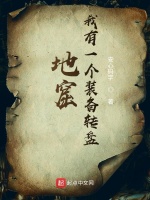 我有一个装备转盘
地窟
著
起点中文网